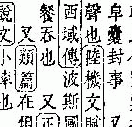 囊封事
聲也陸機文
西域傳波斯國
餐吞也又正
又類篇在相
說文小率也